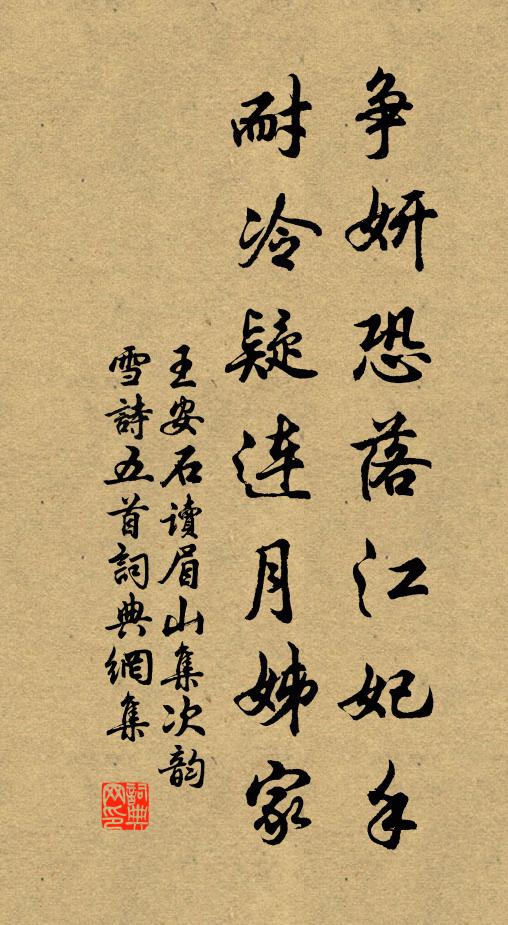 争妍恐落江妃手
耐冷疑连月姊家
王安石读眉山集次韵
雪诗五首词典網集
詞典網印